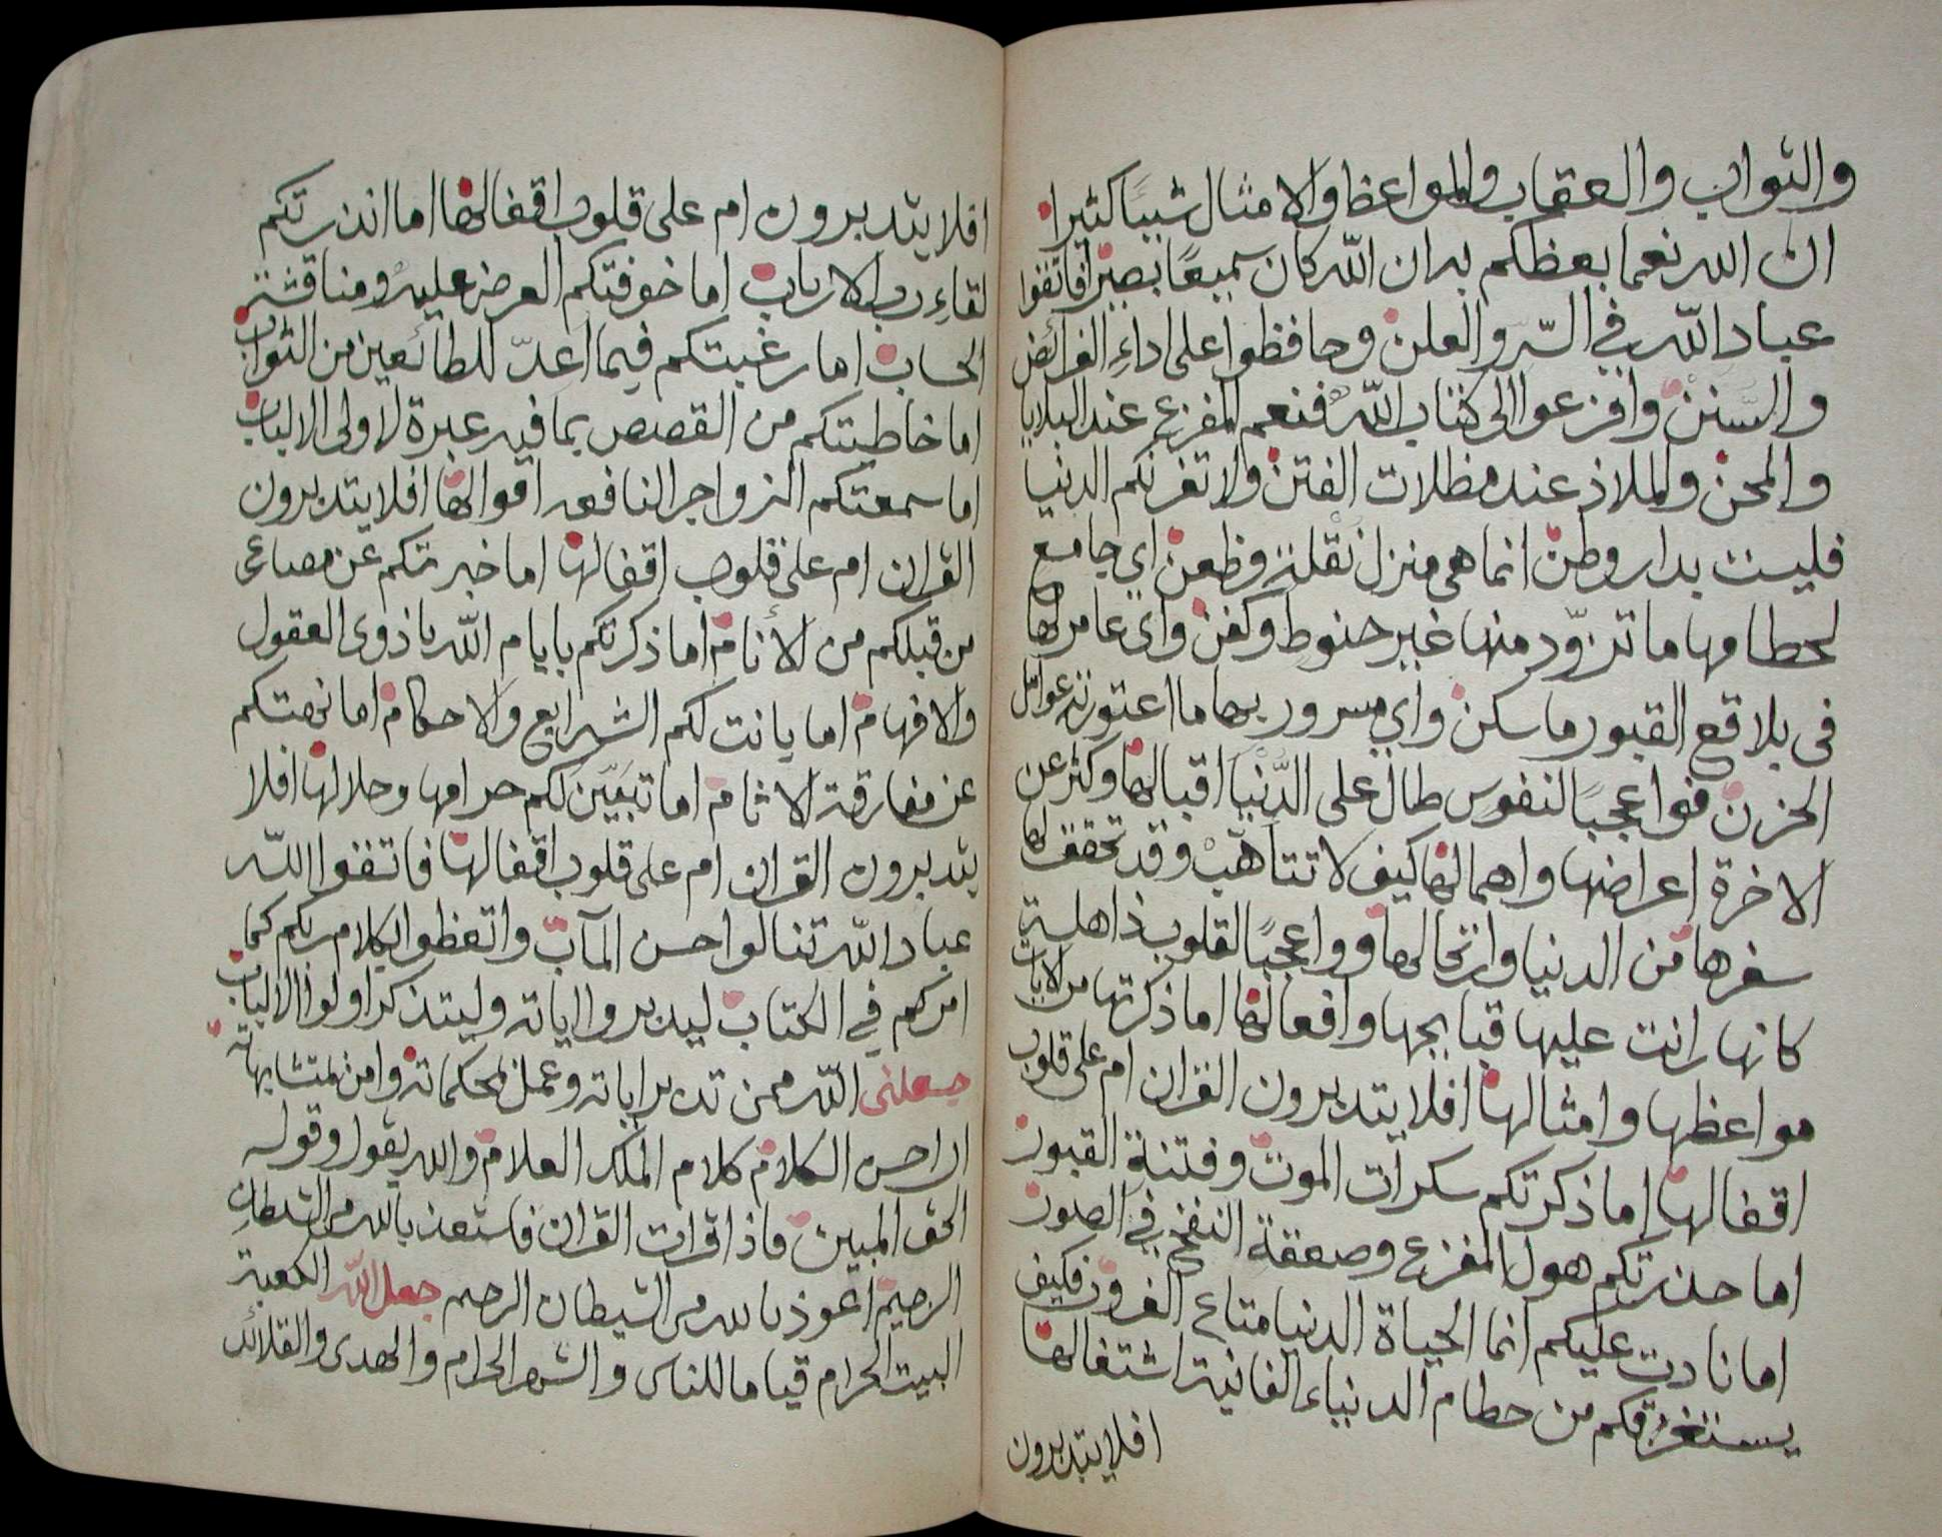 والثواب والعقاب والمواعظ والامثال شيئا كثيرا
ان الله نعما يعظكم به ان الله كان سميعًا بصيرا فاتقوا
عباد الله في السّر والعلن وحافظوا على اداءِ الفرائض
والسنن وافزعوا الى كتاب الله فنعم المفزع عند البلايا
والمحن والملاذ عند مظلات الفتن ولا تغرنكم الدنيا
فليست بدار وطن انما هي منزل نقلة وظعن اي جامع
لحطامها ما تزوّد منها غير حنوط وكفن واي عامر لها
في بلاقع القبور ما سكن واي مسرور بها ما اعتورته عوامل
الحزن فوا عجبًا لنفوس طال على الدُّنيا اقبالها وكثر عن
الاخرة اعراضها واهمالها كيف لا تتأهب وقد تحقق لها
سفرها من الدنيا وارتحالها ووا عجبًا لقلوب ذاهلية
كانها رانت عليها قبايحها وافعالها اما ذكرتها من الايات
مواعظها وامثالها افلا يتدبرون القران ام على قلوب
اقفالها اما ذكرتكم سكرات الموت وفتنة القبور
اما حذرتكم هول المفزع وصعقة النفخ في الصور
اما نادت عليكم انما الحياة الدنيا متاع الغرور فكيف
يستغرقكم من حطام الدنياء الفانية اشتغالها
افلا يتدبرون
افلا يتدبرون ام على قلوب اقفالها اما انذرتكم
لقاءِ رب الارباب اما خوفتكم العرض عليه ومناقشة
الحساب اما رغبتكم فيما اعدّ للطائعين من الثواب
اما خاطبتكم من القصص بما فيه عبرة لاولى الالباب
اما سمعتكم الزواجر النافعه اقوالها افلا يتدبرون
القران ام على قلوب اقفالها اما خبرتكم عن مصارع
من قبلكم من الأنام اما ذكرتكم بايام الله يا ذوى العقول
والافهام اما بانت لكم الشرايع والاحكام اما نهتكم
عن مفارقة الاثام اما تبَيَّن لكم حرامها وحلالها افلا
يتدبرون القران ام على قلوب اقفالها فاتقوا الله
عباد الله تنالوا حسن المآب واتعظوا بكلام ربكم كما
امركم في الكتاب ليدبروا اياته وليتذكر اولوا الالباب
جعلنى الله ممن تدبر اياته وعمل بمحكماته وامن بمتشابهاته
ان احسن الكلام كلام الملك العلام والله يقول وقوله
الحق المبين فاذا قرات القران فاستعذ بالله من الشيطان
الرجيم اعوذ بالله من الشيطان الرجيم جعل الله الكعبة
البيت الحرام قياما للناس والشهر الحرام والهدى والقلائد